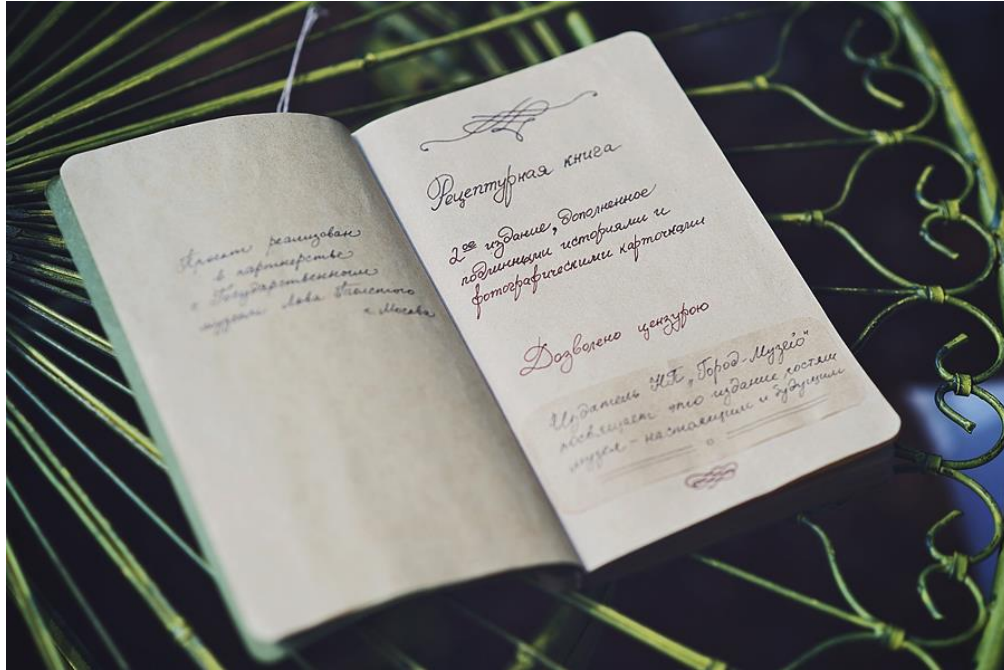 Проект реализован
в партнерстве
с Государственным
музеем Льва Толстого
г. Москва
Рецептурная книга
2ое издание, дополненное
подлинными историями и
фотографическими карточками
Дозволено цензурою
Издатель НП „Город-Музей"
посвящает это издание гостям
музея - настоящим и будущим